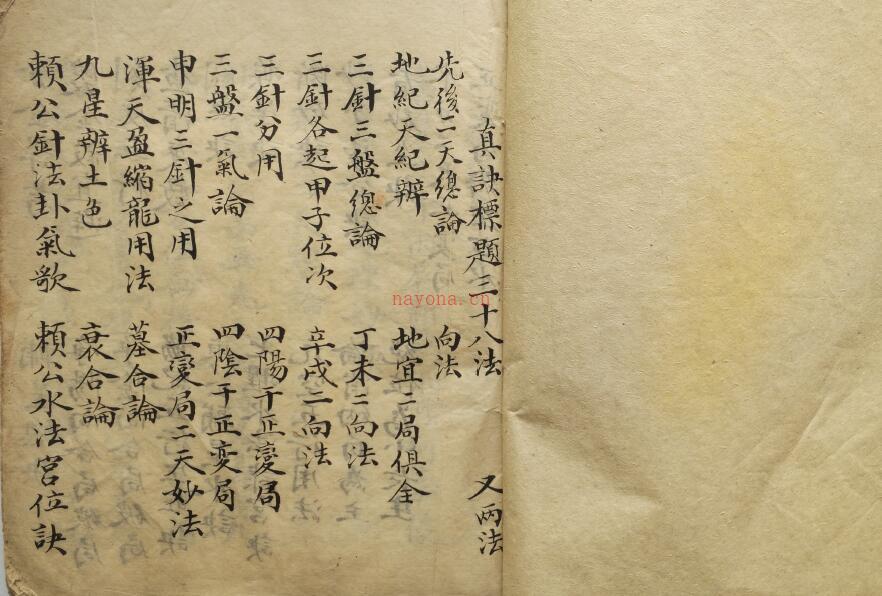 真訣標題三十八法 又兩法
先後二天總論 向法
地紀天紀辨 地宜二局俱全
三針三盤總論 丁未二向法
三針各起甲子位次 辛戌二向法
三針分用 四陽干正變局
三盤一氣論 四陰干正変局
申明三針之用 正變局二天妙法
渾天盈縮龍用法 墓合論
九星辨土色 衰合論
賴公針法卦氣歌 賴公水法宮位訣
nayona.cn